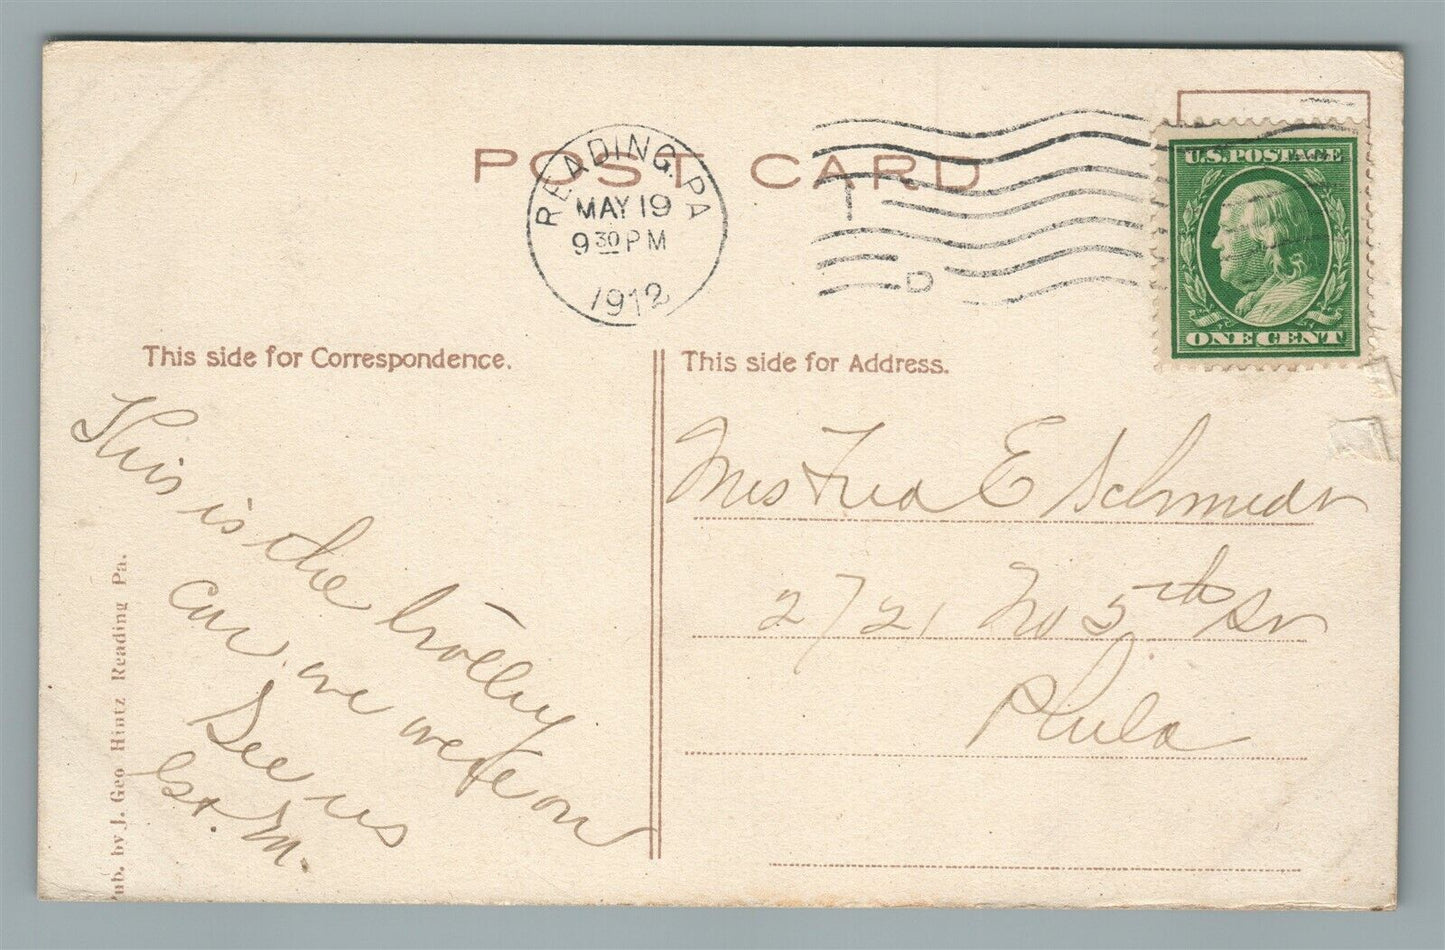 POST CARD
READING, PA
MAY 19
9 30 PM
1912
D
U.S. POSTAGE
ONE CENT
This side for Correspondence.
This side for Address.
This is the trolley
car we were on
See us
M.
Mrs Fred E Schmidt
2721 No 5th St
Phila
ub. by J. Geo Hintz Reading Pa.